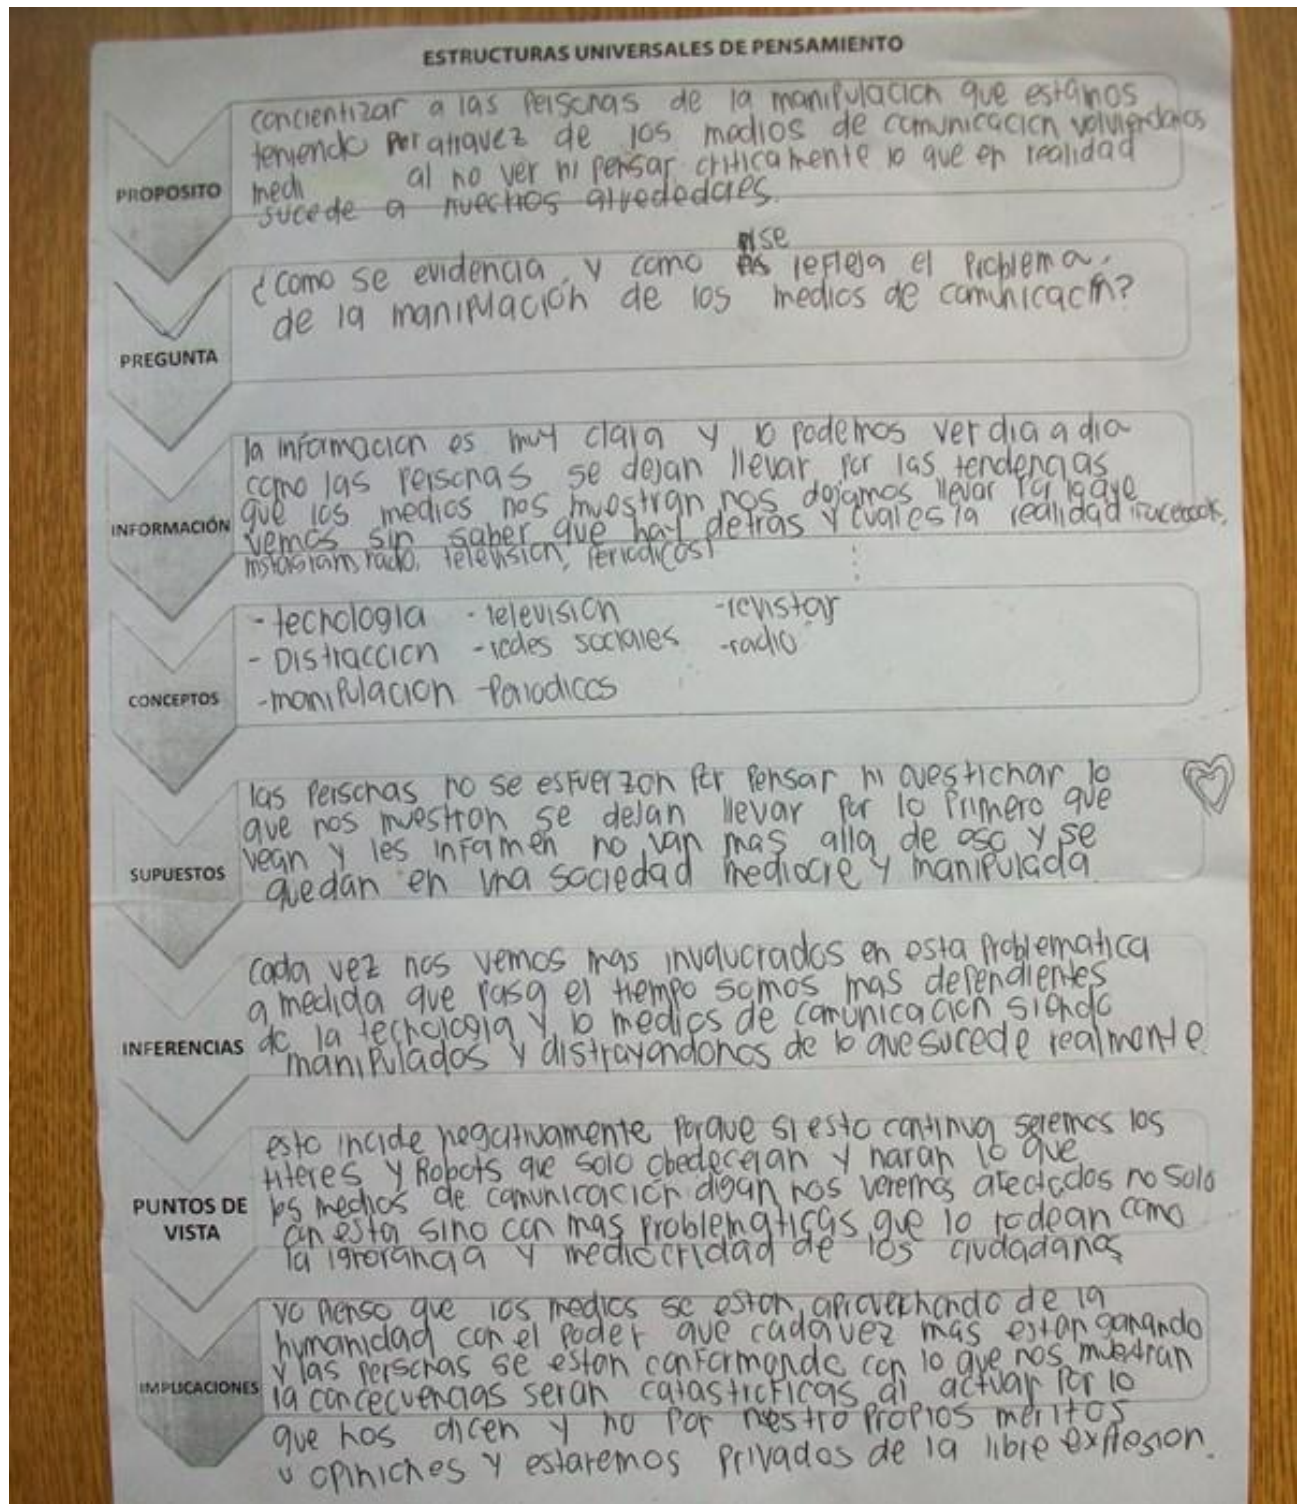 ESTRUCTURAS UNIVERSALES DE PENSAMIENTO
PROPOSITO
concientizar a las personas de la manipulacion que estamos
teniendo por atravez de los medios de comunicacion volviendonos
medi al no ver ni pensar criticamente lo que en realidad
sucede a nuestros alrededores.
PREGUNTA
se
¿como se evidencia y como refleja el problema
de la manipulación de los medios de comunicación?
INFORMACIÓN
la informacion es muy clara y lo podemos ver dia a dia
como las personas se dejan llevar por las tendencias
que los medios nos muestran nos dejamos llevar por lo que
vemos sin saber que hay detras y cual es la realidad (facebook,
instagram, radio, television, periodicos)
CONCEPTOS
- tecnologia - television - revistas
- Distraccion - redes sociales - radio
- manipulacion - Periodicos
SUPUESTOS
las personas no se esfuerzan por pensar ni cuestionar lo
que nos muestran se dejan llevar por lo primero que
vean y les informen no van mas alla de eso y se
quedan en una sociedad mediocre y manipulada
INFERENCIAS
cada vez nos vemos mas involucrados en esta problematica
a medida que pasa el tiempo somos mas dependientes
de la tecnologia y lo medios de comunicacion siendo
manipulados y distrayendonos de lo que sucede realmente
PUNTOS DE
VISTA
esto incide negativamente porque si esto continua seremos los
titeres y Robots que solo obedeceran y haran lo que
los medios de comunicación digan nos veremos afectados no solo
en esta sino con mas problemáticas que lo rodean como
la ignorancia y mediocridad de los ciudadanos
IMPLICACIONES
yo pienso que los medios se estan aprovechando de la
humanidad con el poder que cada vez mas estan ganando
y las personas se estan conformando con lo que nos muestran
la concecuencias seran catastroficas al actuar por lo
que nos dicen y no por nuestro propios meritos
u opiniones y estaremos privados de la libre expresion.